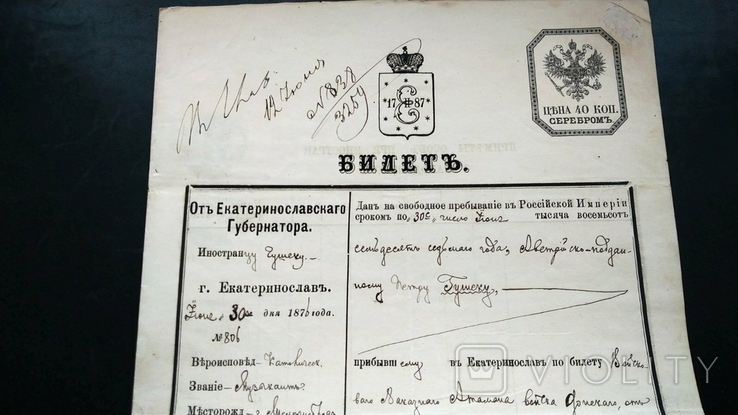 12 Июня
№ 838
3259
17 87
Е II
ЦѢНА 40 КОП.
СЕРЕБРОМЪ.
БИЛЕТЪ.
Отъ Екатеринославскаго
Губернатора.
Иностранцу Гушеку.
г. Екатеринославъ.
Іюня 30го дня 1876 года.
№ 806
Вѣроисповѣд- Католическ.
Званіе- Музыкантъ
Мѣсторожд- г.
Данъ на свободное пребываніе въ Россійской Имперіи
срокомъ по „30е„ число Іюня тысяча восемьсотъ
семьдесятъ седьмаго года, Австрійско-поддан-
ному Петру Гушеку,
прибывшему въ Екатеринославъ по билету Войско
ваго Наказнаго Атамана войска Донскаго, отъ
VIOLITY